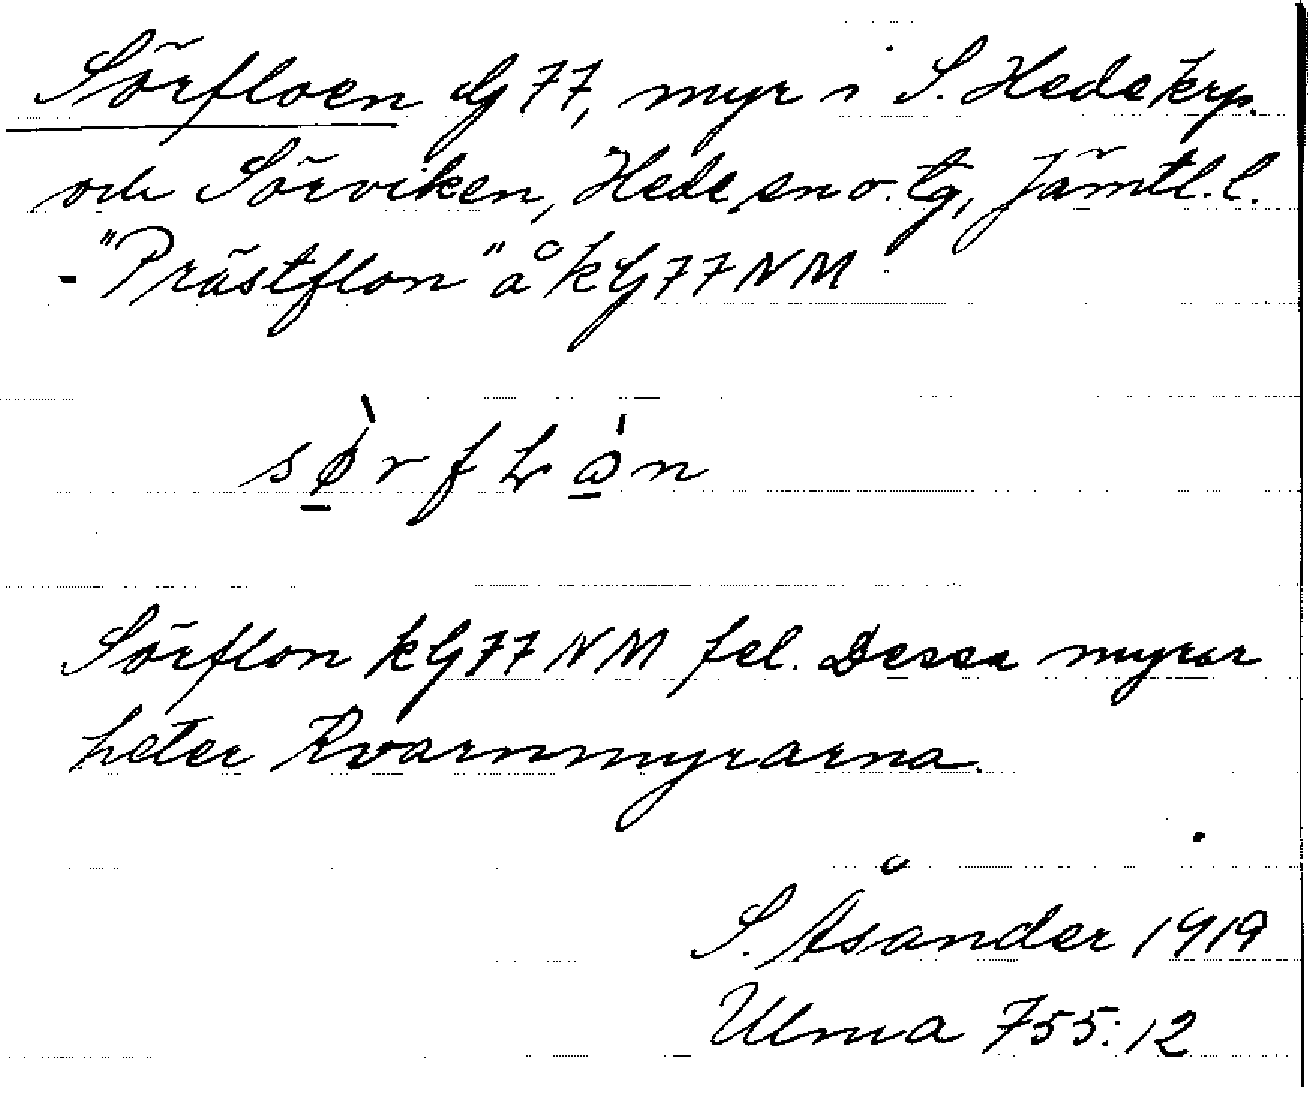 Sörfloen G 77, myr i S. Hede krp.
och Sörviken, Hede sn o. tg, Jämtl. l.
- "Prästflon" å kG77NM
sø̀rfLån
Sörflon kG77NM fel. Dessa myrar
heter Kvarnmyrarna.
S. Åsander 1919
Ulma 755:12